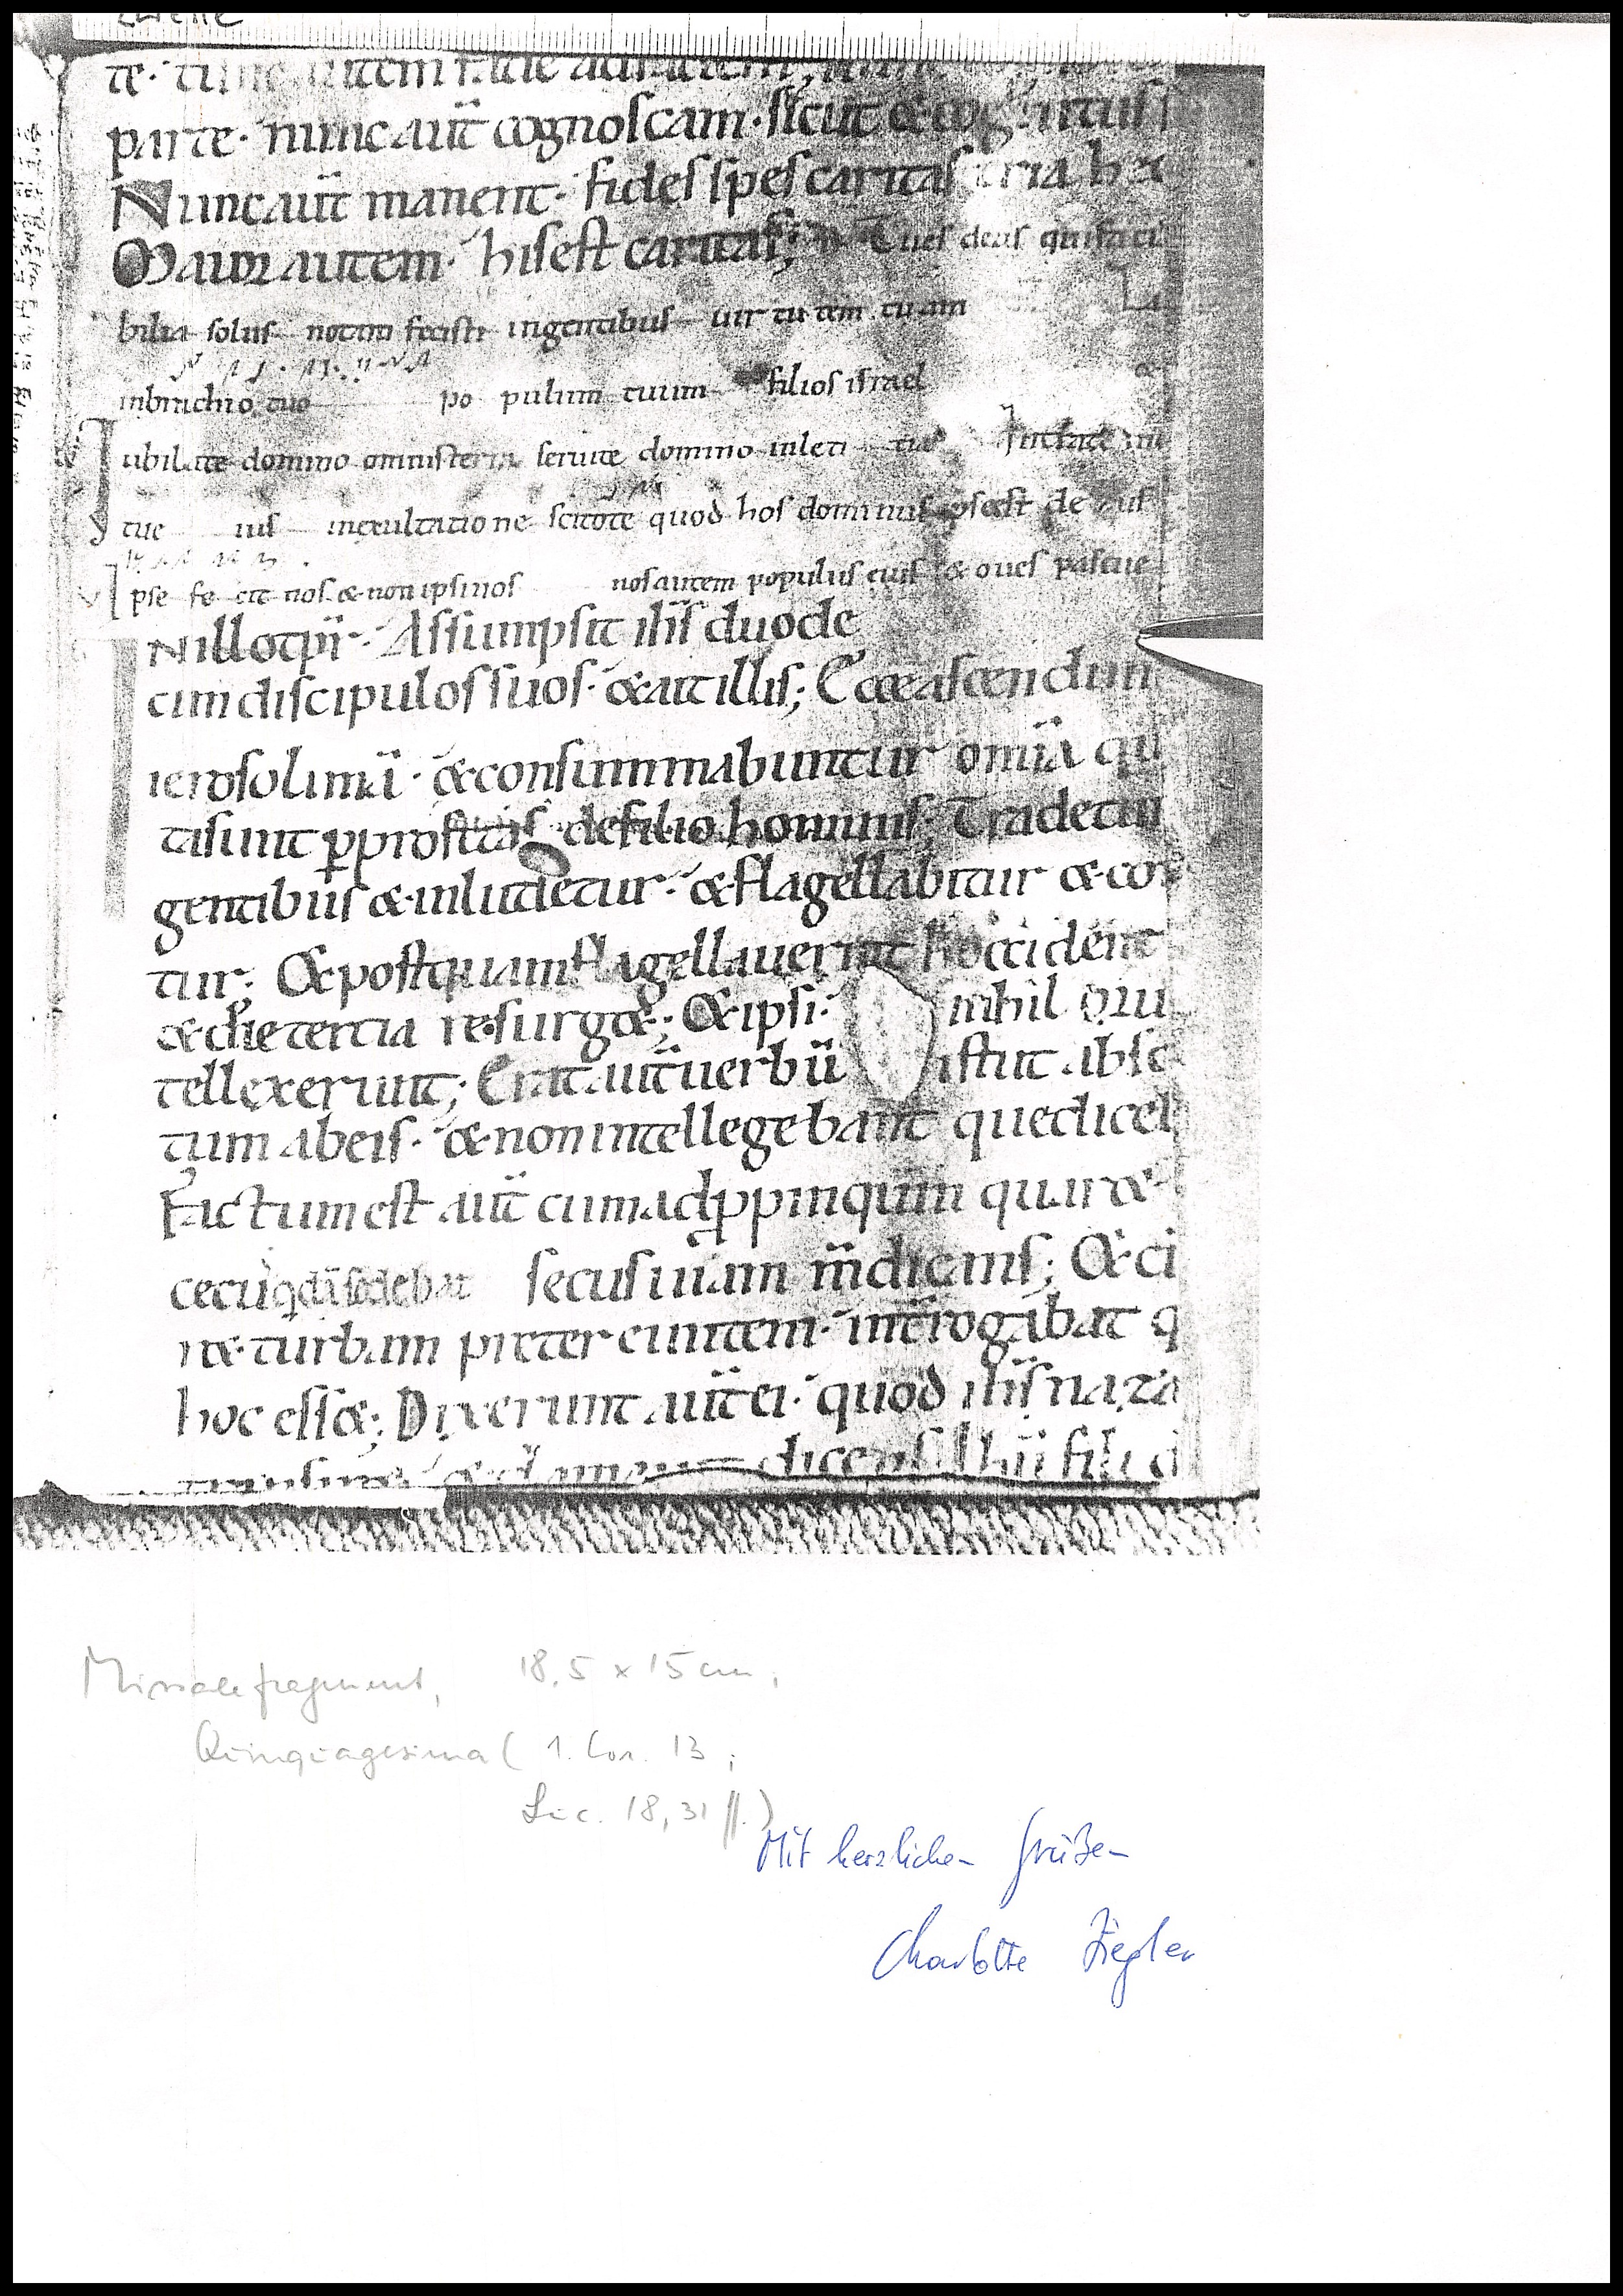 Zwettl
parte· nunc aut̄ cognoscam· sicut & cognitus s
Nunc aut̄ manent· fides spes caritas tria hæc
Maior autem· his est caritas; Tu es deus qui faci
bilia solus notam fecisti in gentibus uir tu tem tuam
in brachio tuo po pulum tuum filios israel &
Iubilate domino omnis terra seruite domino in leti tia Intrate in
tue ius in exultatione scitote quod hos dominus ipse est de us
Ipse fe cit nos & non ipsi nos nos autem populus eius & oues pascue
IN illo tp̄r· Assumpsit ih̄s duode
cim discipulos suos· & ait illis; Ecce ascendim
ierosolimā· & consummabuntur omīa qu
ta sunt ꝑ prof&as de filio hominis; Tradetur
gentibus & inludetur· & flagellabitur & con
tur; & postquam flagellauerint occident
& die tertia resurg&; & ipsi· nihil horu
tellexerunt; Erat aut̄ uerbū istut absc
tum ab eis· & non intellegebant que diceb
Factum est aut̄ cum adꝓpinquaret
cecus qdā sedebat secus uiam mdicans; & cū
r& turbam pretereuntem· int̄rogabat q
hoc ess&; Dixerunt aut̄ ei· quod ih̄s naza
transir&· & clamauit dicens ihū fili d
Missalefragment, 18,5 x 15 cm,
Quinquagesima (1. Cor. 13;
Luc. 18,31 ff.)
Mit herzlichen Grüßen
Charlotte Ziegler